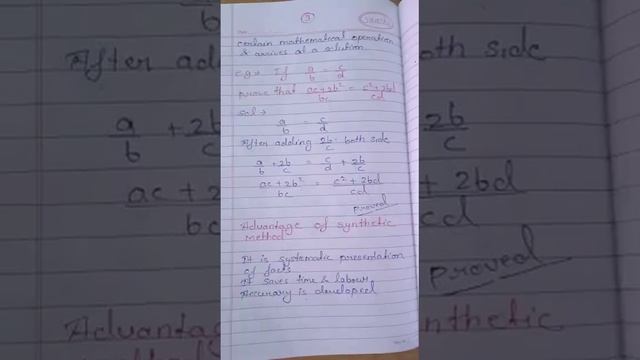 3
certain mathematical operation
& arrives at a solution
e.g.→ If a/b = c/d
prove that ac+2b²/bc = c²+2bd/cd
sol →
a/b = c/d
After adding 2b/c both side
a/b + 2b/c = c/d + 2b/c
ac+2b²/bc = c²+2bd/cd
Proved
Advantage of synthetic
method
It is systematic presentation
of facts
It saves time & labour
Accuracy is developed